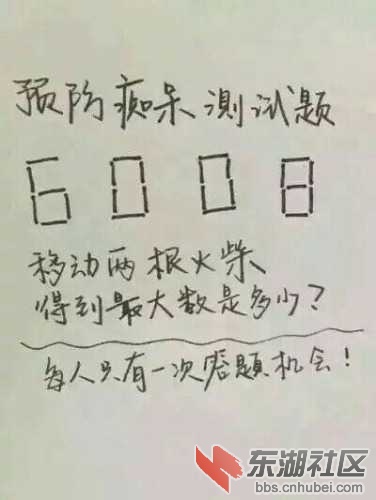 预防痴呆测试题
6008
移动两根火柴
得到最大数是多少?
每人只有一次答题机会!
东湖社区
bbs.cnhubei.com